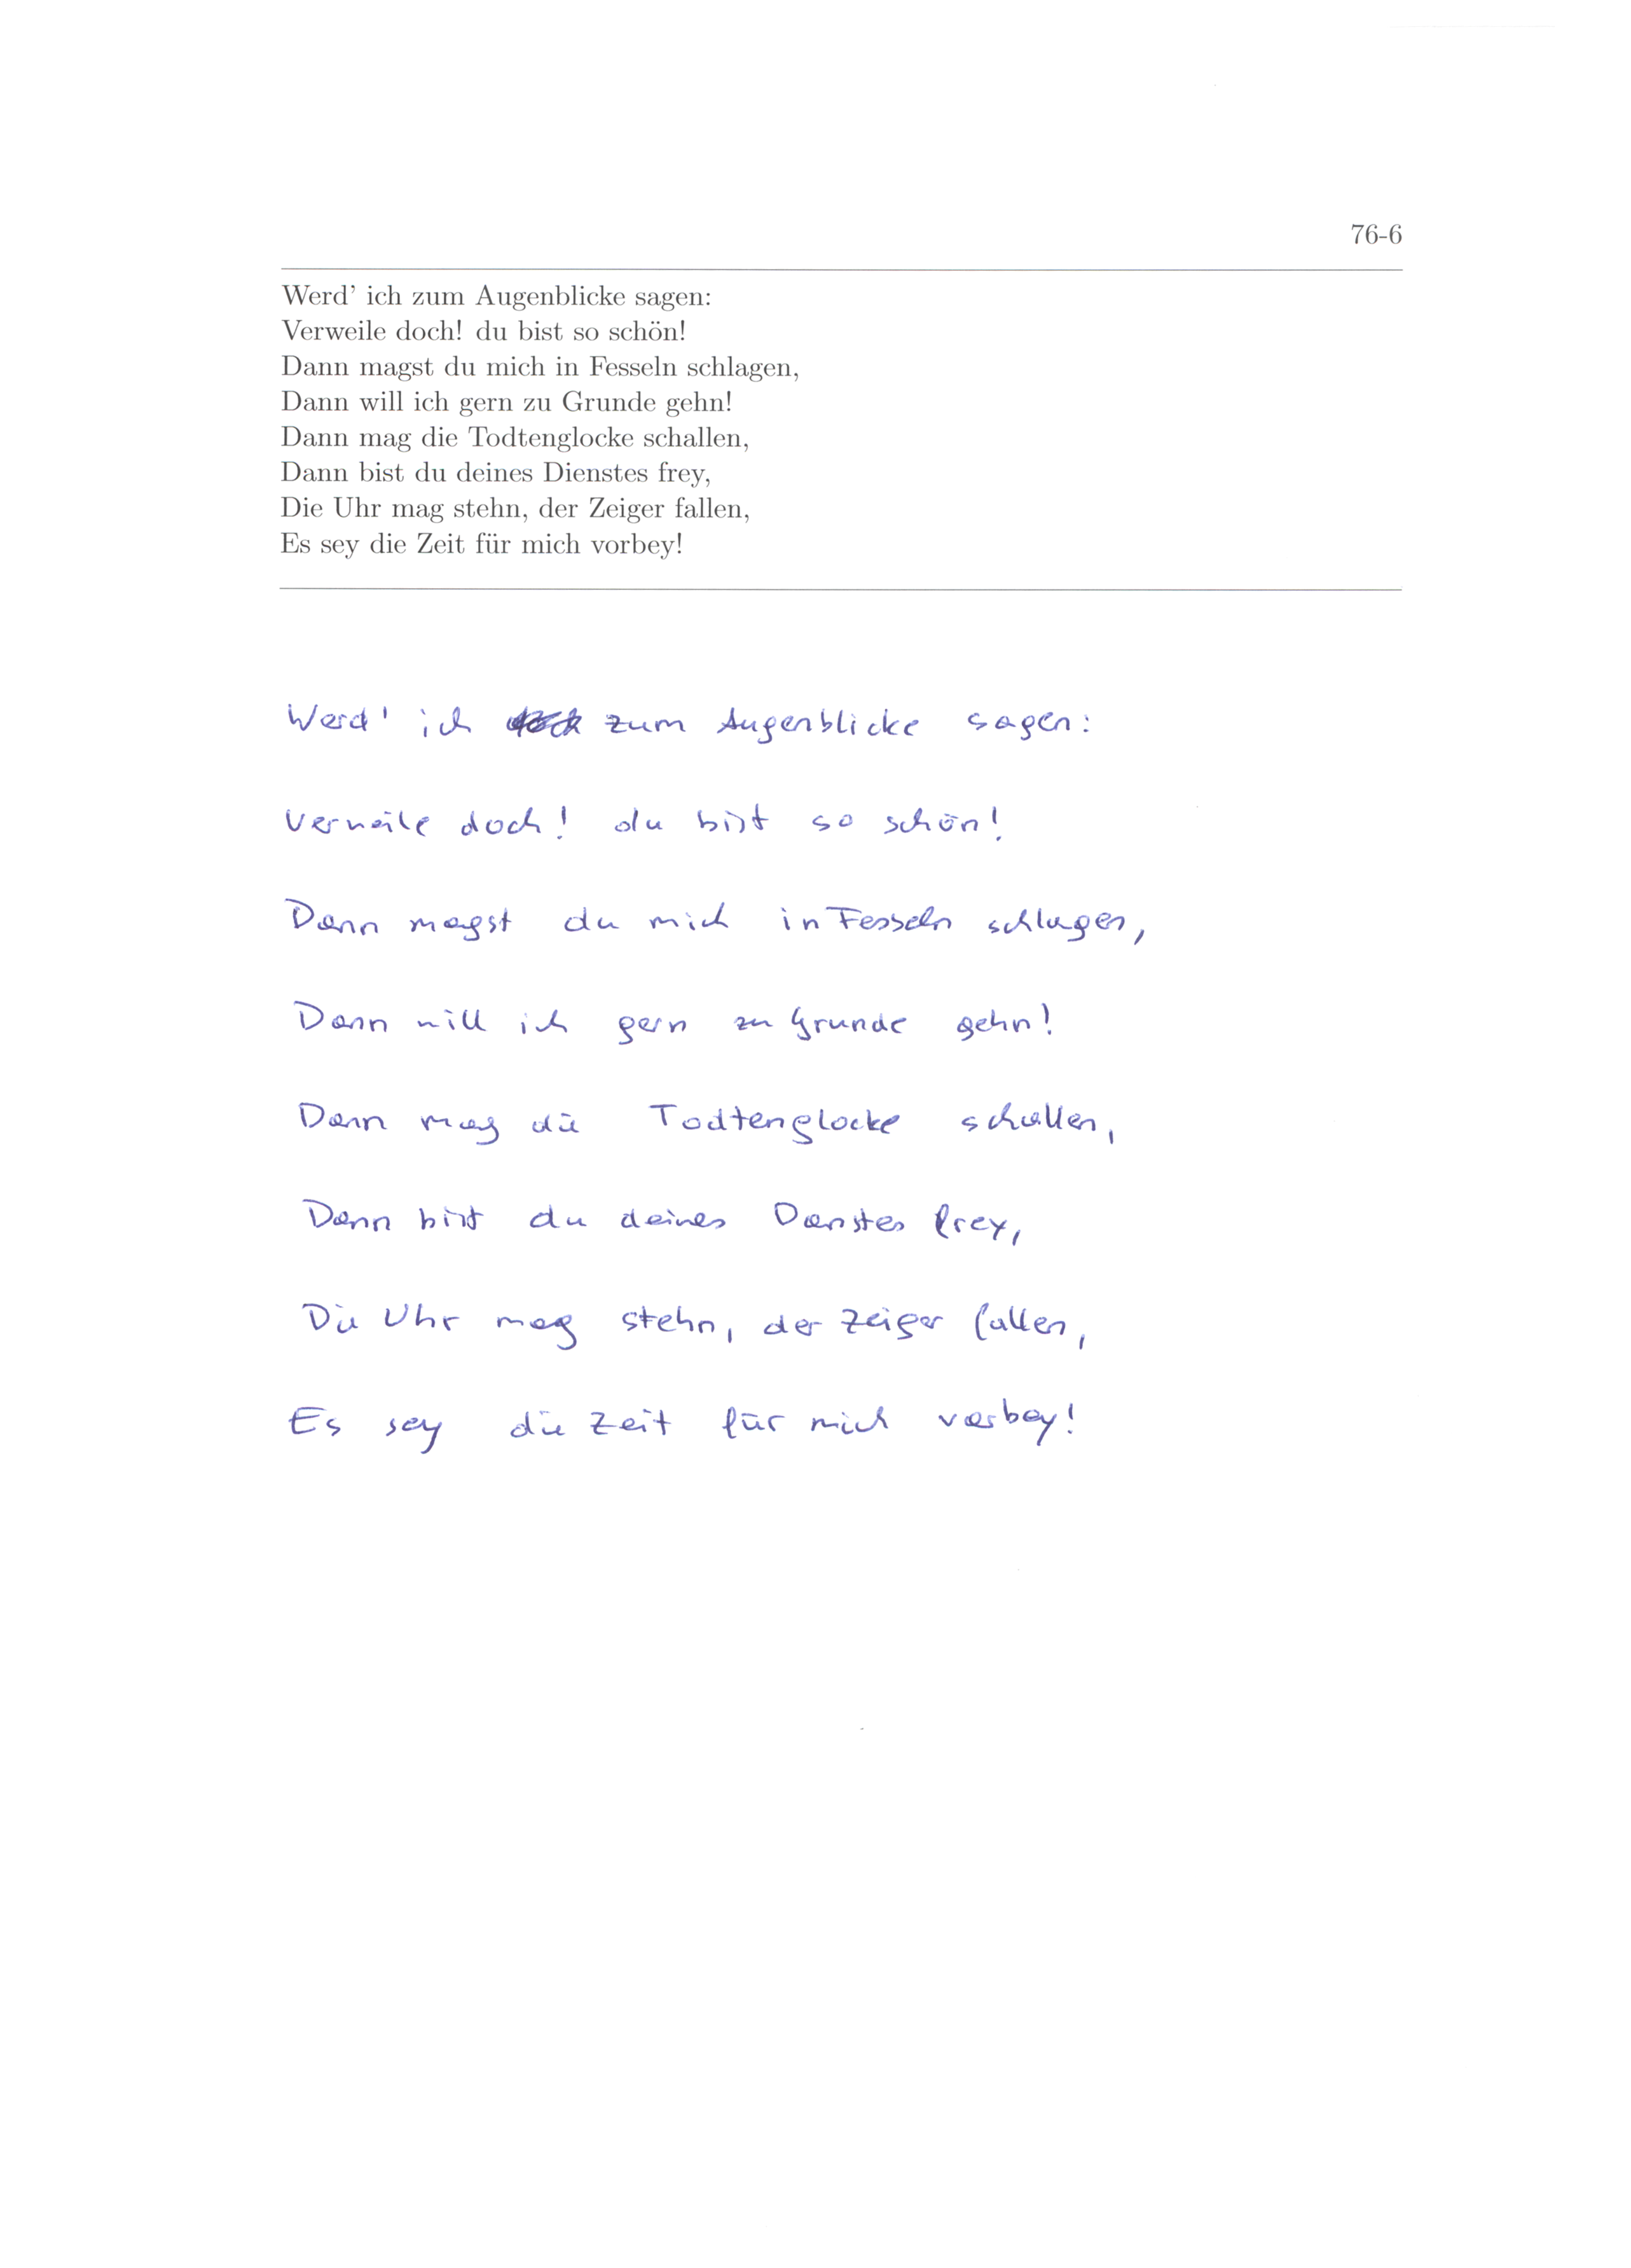 76-6
Werd' ich zum Augenblicke sagen:
Verweile doch! du bist so schön!
Dann magst du mich in Fesseln schlagen,
Dann will ich gern zu Grunde gehn!
Dann mag die Todtenglocke schallen,
Dann bist du deines Dienstes frey,
Die Uhr mag stehn, der Zeiger fallen,
Es sey die Zeit für mich vorbey!
Werd' ich zum Augenblicke sagen:
Verweile doch! du bist so schön!
Dann magst du mich in Fesseln schlagen,
Dann will ich gern zu Grunde gehn!
Dann mag die Todtenglocke schallen,
Dann bist du deines Dienstes frey,
Die Uhr mag stehn, der Zeiger fallen,
Es sey die Zeit für mich vorbey!